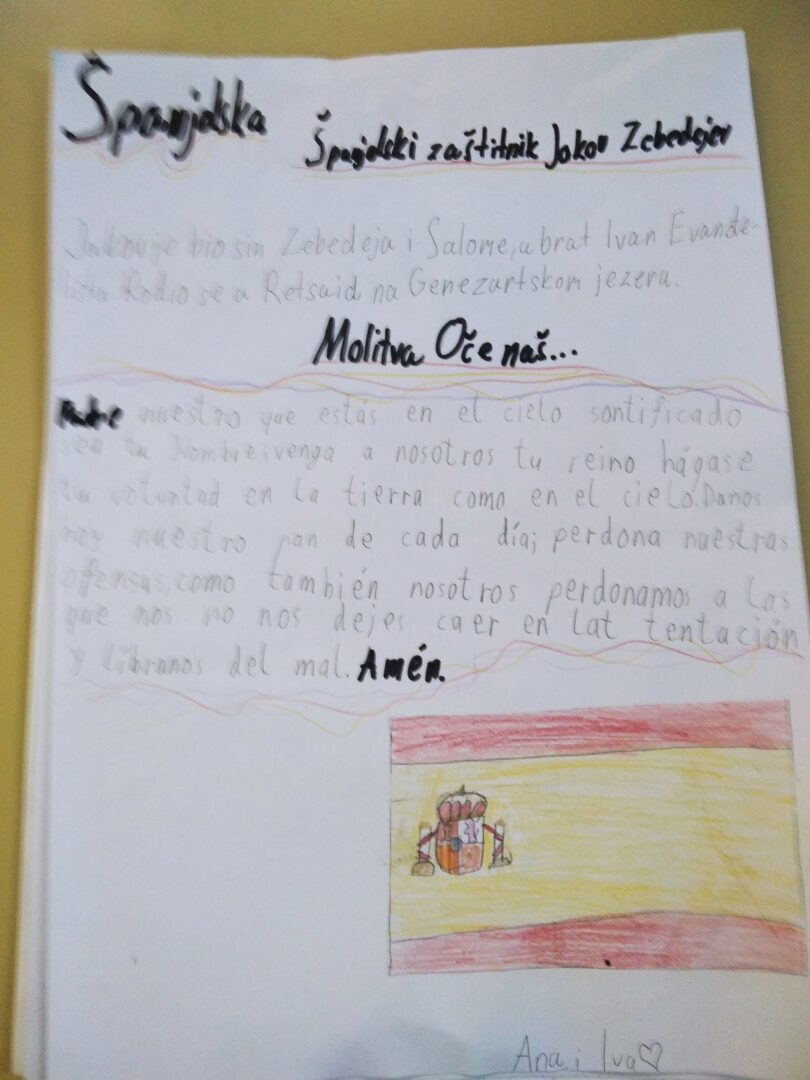 Španjolska
Španjolski zaštitnik Jakov Zebedejev
Jakov je bio sin Zebedeja i Salome, a brat Ivan Evanđe-
lista Rodio se u Retsaid na Genezartskom jezeru.
Molitva Oče naš...
Padre nuestro que estás en el cielo sontificado
sea tu Nombre; venga a nosotros tu reino hágase
tu voluntad en la tierra como en el cielo. Danos
hoy nuestro pan de cada día; perdona nuestras
ofensas, como también nosotros perdonamos a los
que nos no nos dejes caer en lat tentación
y líbranos del mal. Amén.
Ana i Iva♡